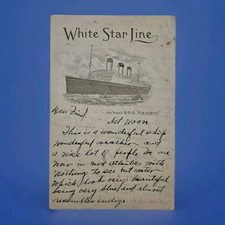 White Star Line
R.M.S. "MAJESTIC"
Dear Friend,
Noon
This is a wonderful ship
wonderful weather and
a nice lot of people. We are
now in mid atlantic with
nothing to see but water
which look very beautiful
being very blue and almost